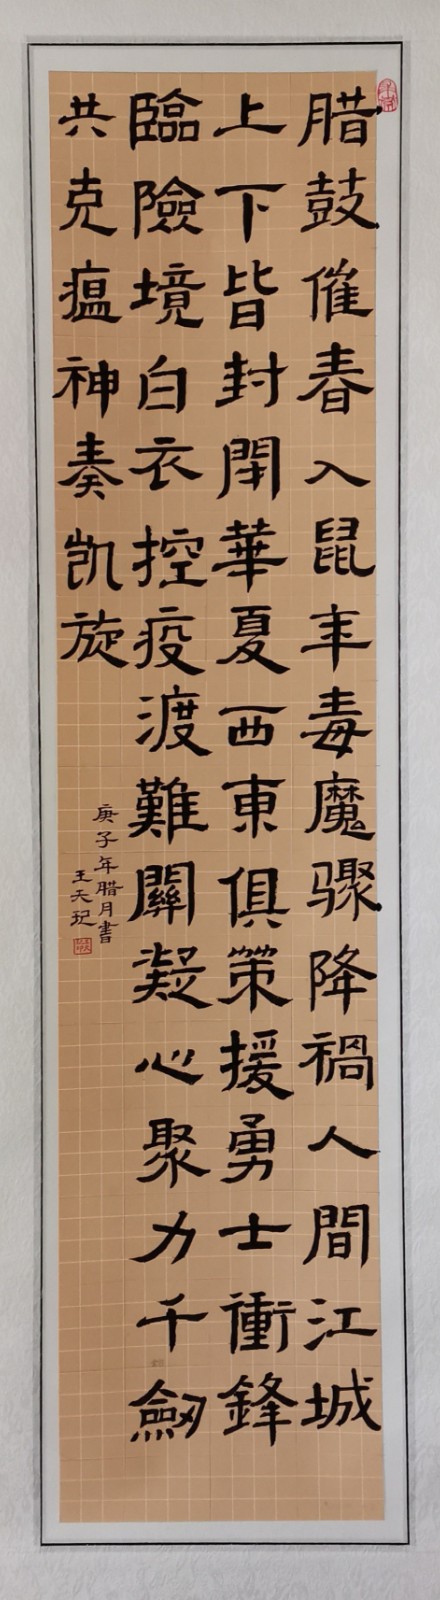 腊鼓催春入鼠年毒魔骤降禍人間江城
上下皆封閉華夏西東俱策援勇士衝鋒
臨險境白衣控疫渡難關凝心聚力千劔
共克瘟神奏凯旋
庚子年腊月書
王天玘